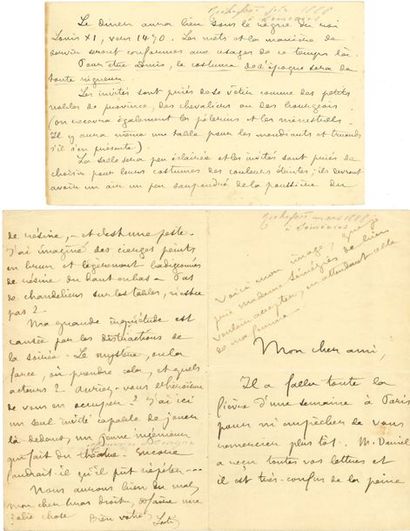 Rochefort 1888
Le dîner aura lieu sous le règne du roi
Louis XI, vers 1470. Les mets et la manière de
servir seront conformes aux usages de ce temps là
Pour être admis, le costume de l'époque sera de
toute rigueur.
Les invités sont priés de se vêtir comme des petits
nobles de province, des chevaliers ou des bourgeois
(on recevra également les pèlerins et les ménestrels.
Il y aura même une table pour les mendiants et truands
s'il s'en présente).
La salle sera peu éclairée et les invités sont priés de
choisir pour leurs costumes des couleurs éteintes; ils devront
avoir un air un peu saupoudré de la poussière du
de résine, - et c'est une peste.
J'ai imaginé des cierges peints
en brun et légèrement badigeonnés
de résine du haut en bas - Pas
de chandeliers sur les tables, n'est ce
pas ?
Ma grande inquiétude est
causée par les distractions de
la soirée - Le mystère, ou la
farce, où prendre cela, et quels
acteurs ? Auriez-vous
de vous en occuper ? J'ai ici
un seul invité capable de jouer
là dedans, un jeune ingénieur
qui fait du théâtre. Encore
faudrait il qu'il pût répéter ---
Nous aurons bien du mal,
mon cher
jolie chose Bien vôtre Loti
Rochefort mars 1888
à Lemercier
Voici mon image, que je
prie madame de bien
vouloir accepter, en attendant celle
de ma femme -
Mon cher ami,
Il a fallu toute la
fièvre d'une semaine à Paris
pour m'empêcher de vous
remercier plus tôt. M. Daniel
a reçu toutes vos lettres et
il est très confus de la peine